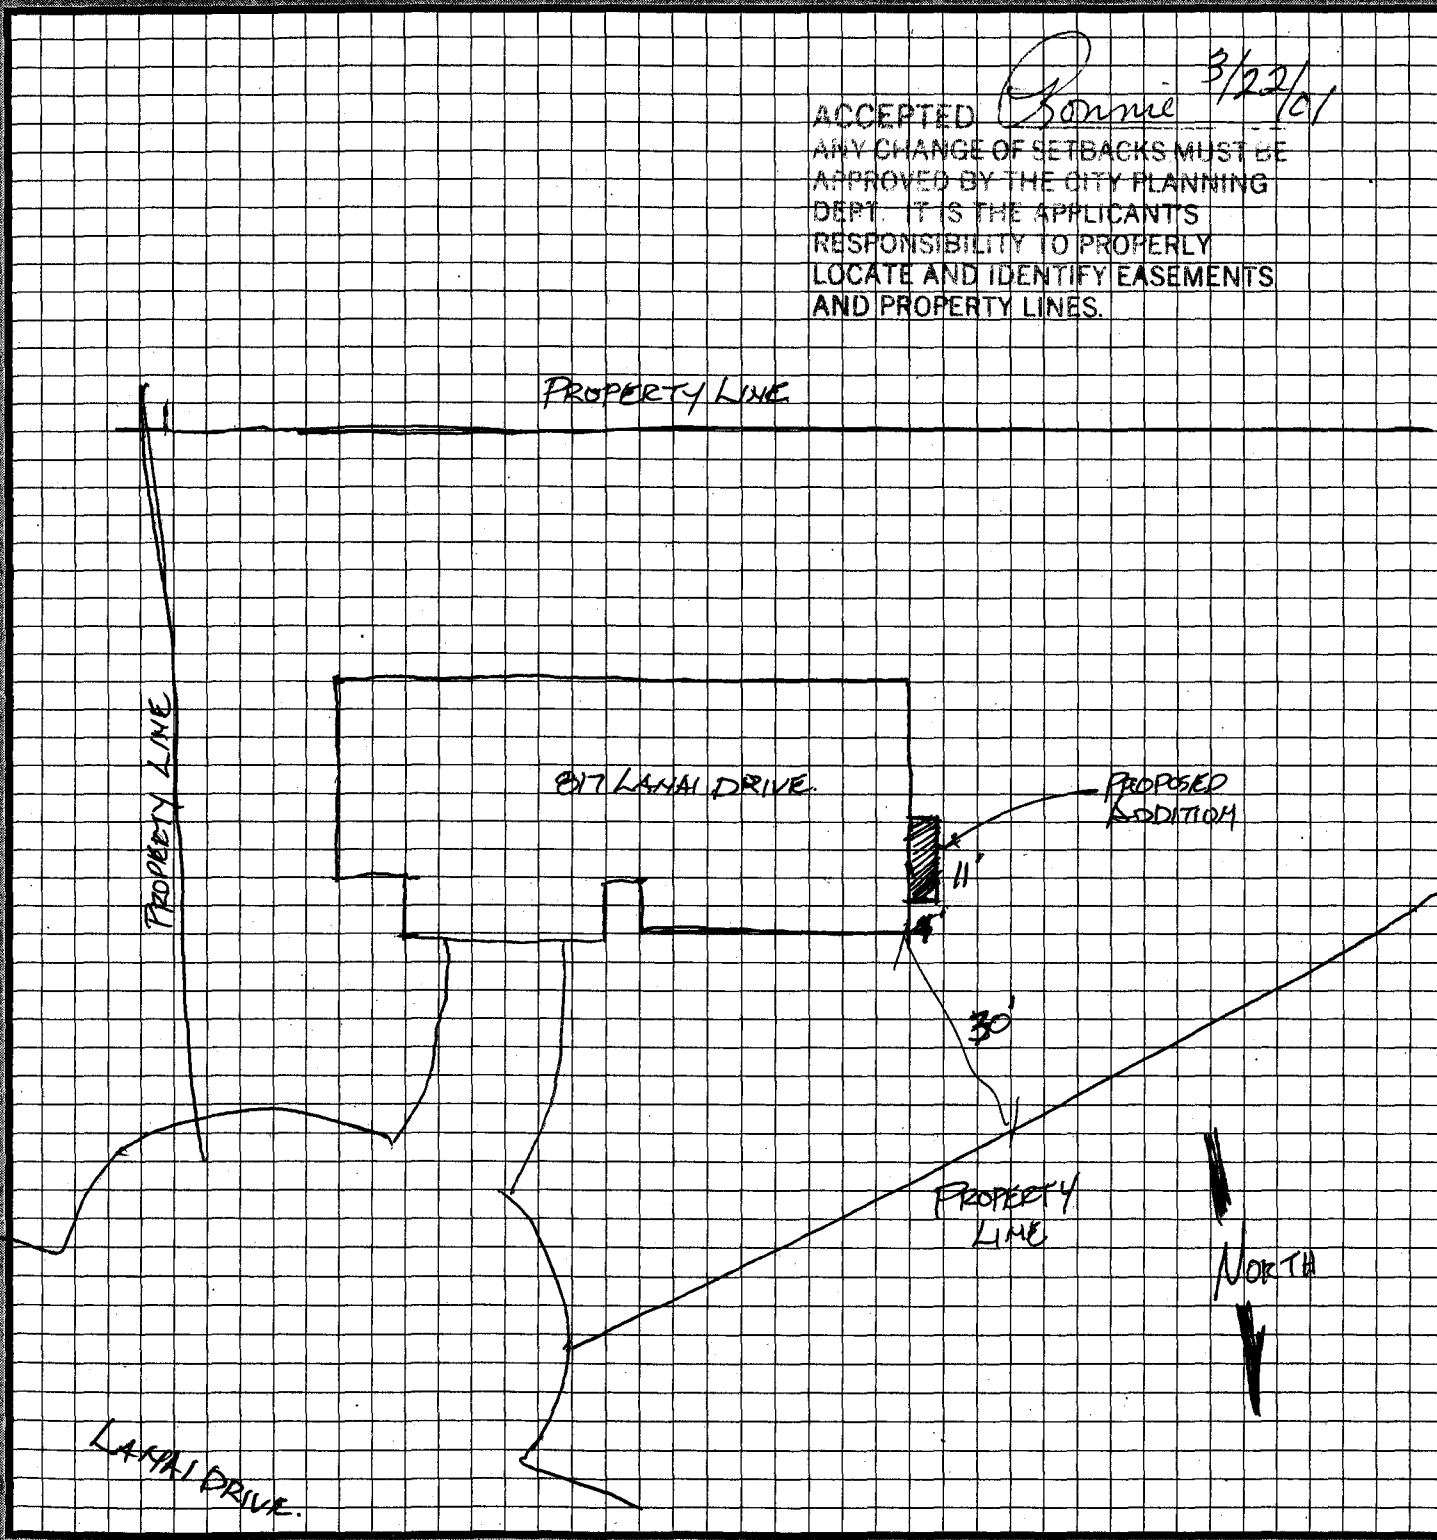 ACCEPTED Ronnie 3/22/01
ANY CHANGE OF SETBACKS MUST BE
APPROVED BY THE CITY PLANNING
DEPT. IT IS THE APPLICANT'S
RESPONSIBILITY TO PROPERLY
LOCATE AND IDENTIFY EASEMENTS
AND PROPERTY LINES.
PROPERTY LINE
PROPERTY LINE
817 LANAI DRIVE.
PROPOSED
ADDITION
11'
4'
30'
PROPERTY
LINE
NORTH
LANAI DRIVE.